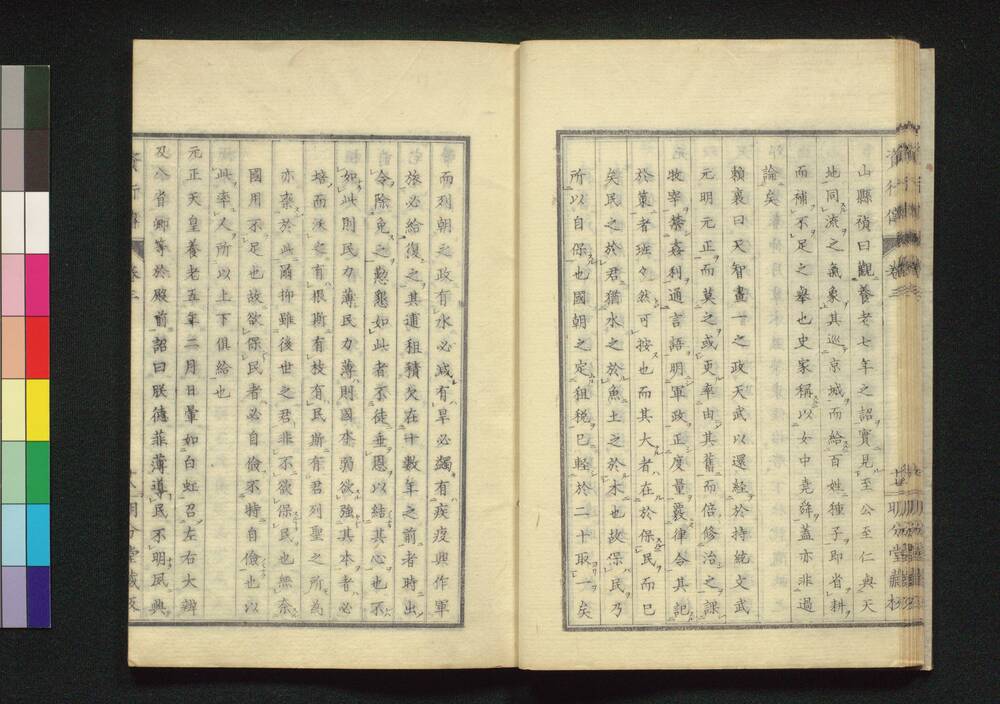 山縣禎曰觀養老七年之詔實見至公至仁與天
地同流之氣象其巡京城而給百姓種子即省耕
而補不足之擧也史家稱以女中堯舜蓋亦非過
論矣
賴襄曰天智畫一之政天武以還經於持統文武
元明元正而莫之或更率由其舊而倍修治之課
牧宰禁姦利通言語明軍政正度量嚴律令其記
於策者班々然可按也而其大者在於保民而已
矣民之於君猶水之於魚土之於木也故保民乃
所以自保也國朝之定租税已輕於二十取一矣
而列朝之政有水必減有旱必蠲有疾疫興作軍
旅必給復之其逋租積欠在十數年之前者時出
令除免之懃懇如此者不徒垂恩以結其心也不
如此則民力薄民力薄則國本弱欲強其本者必
培而沃之有根斯有枝有民斯有君列聖之所為
亦柰於此爾抑雖後世之君非不欲保民也無奈
國用不足也故欲保民者必自儉不特自儉也以
此率人所以上下俱給也
元正天皇養老五年二月日暈如白虹召左右大辨
及八省卿等於殿前詔曰朕德菲薄導民不明夙興